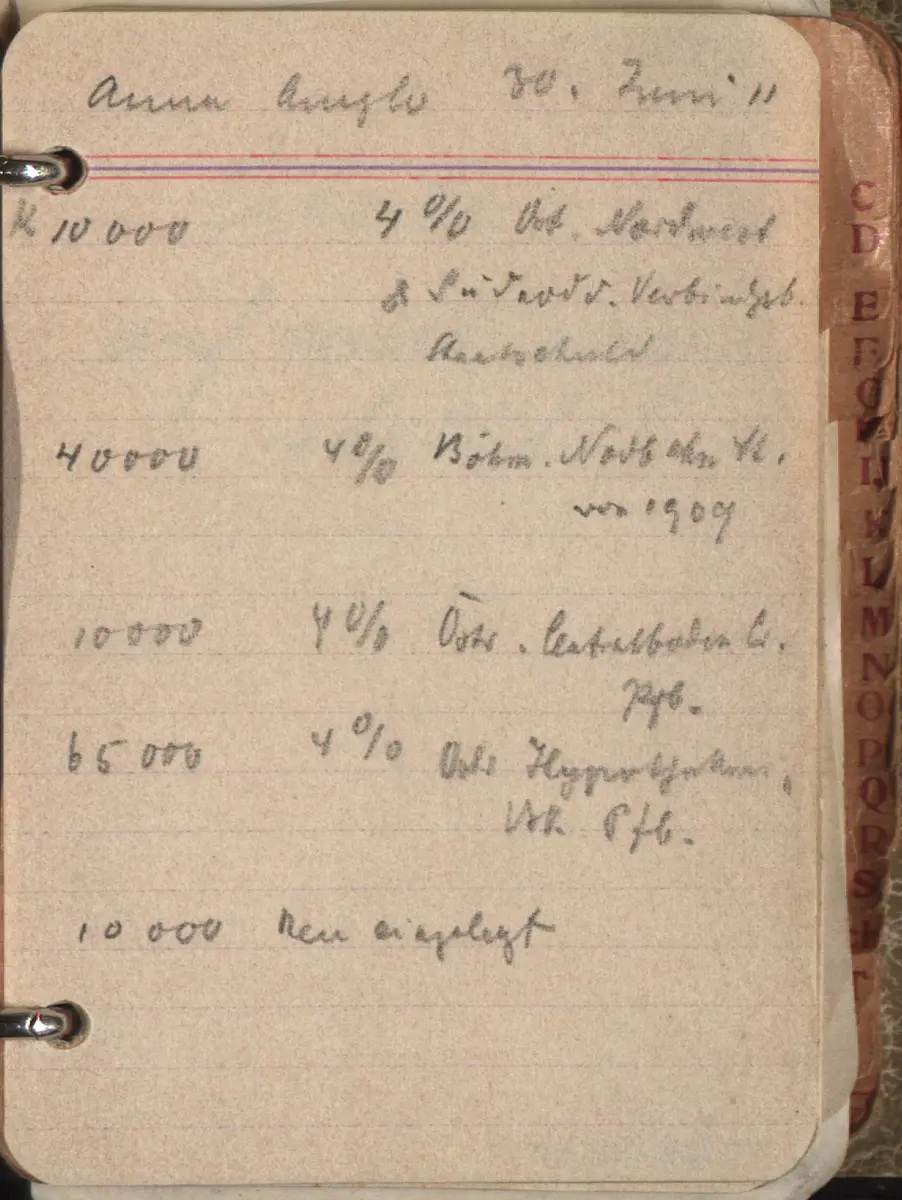 Anna 30. Juni 11
K 10 000 4 % Öst. Nordwest
& Südnordd. Verbindgsb.
Staatsschuld
40000 4% Böhm. Nordbahn
von 1909
10000 4% Östr. Centralboden Cr.
Pfb.
65 000 4% Östr Hypotheken,
Bk. Pfb.
10 000 Neu eingelegt
C
D
E
F
G
K
L
M
N
O
P
Q
R
S
T